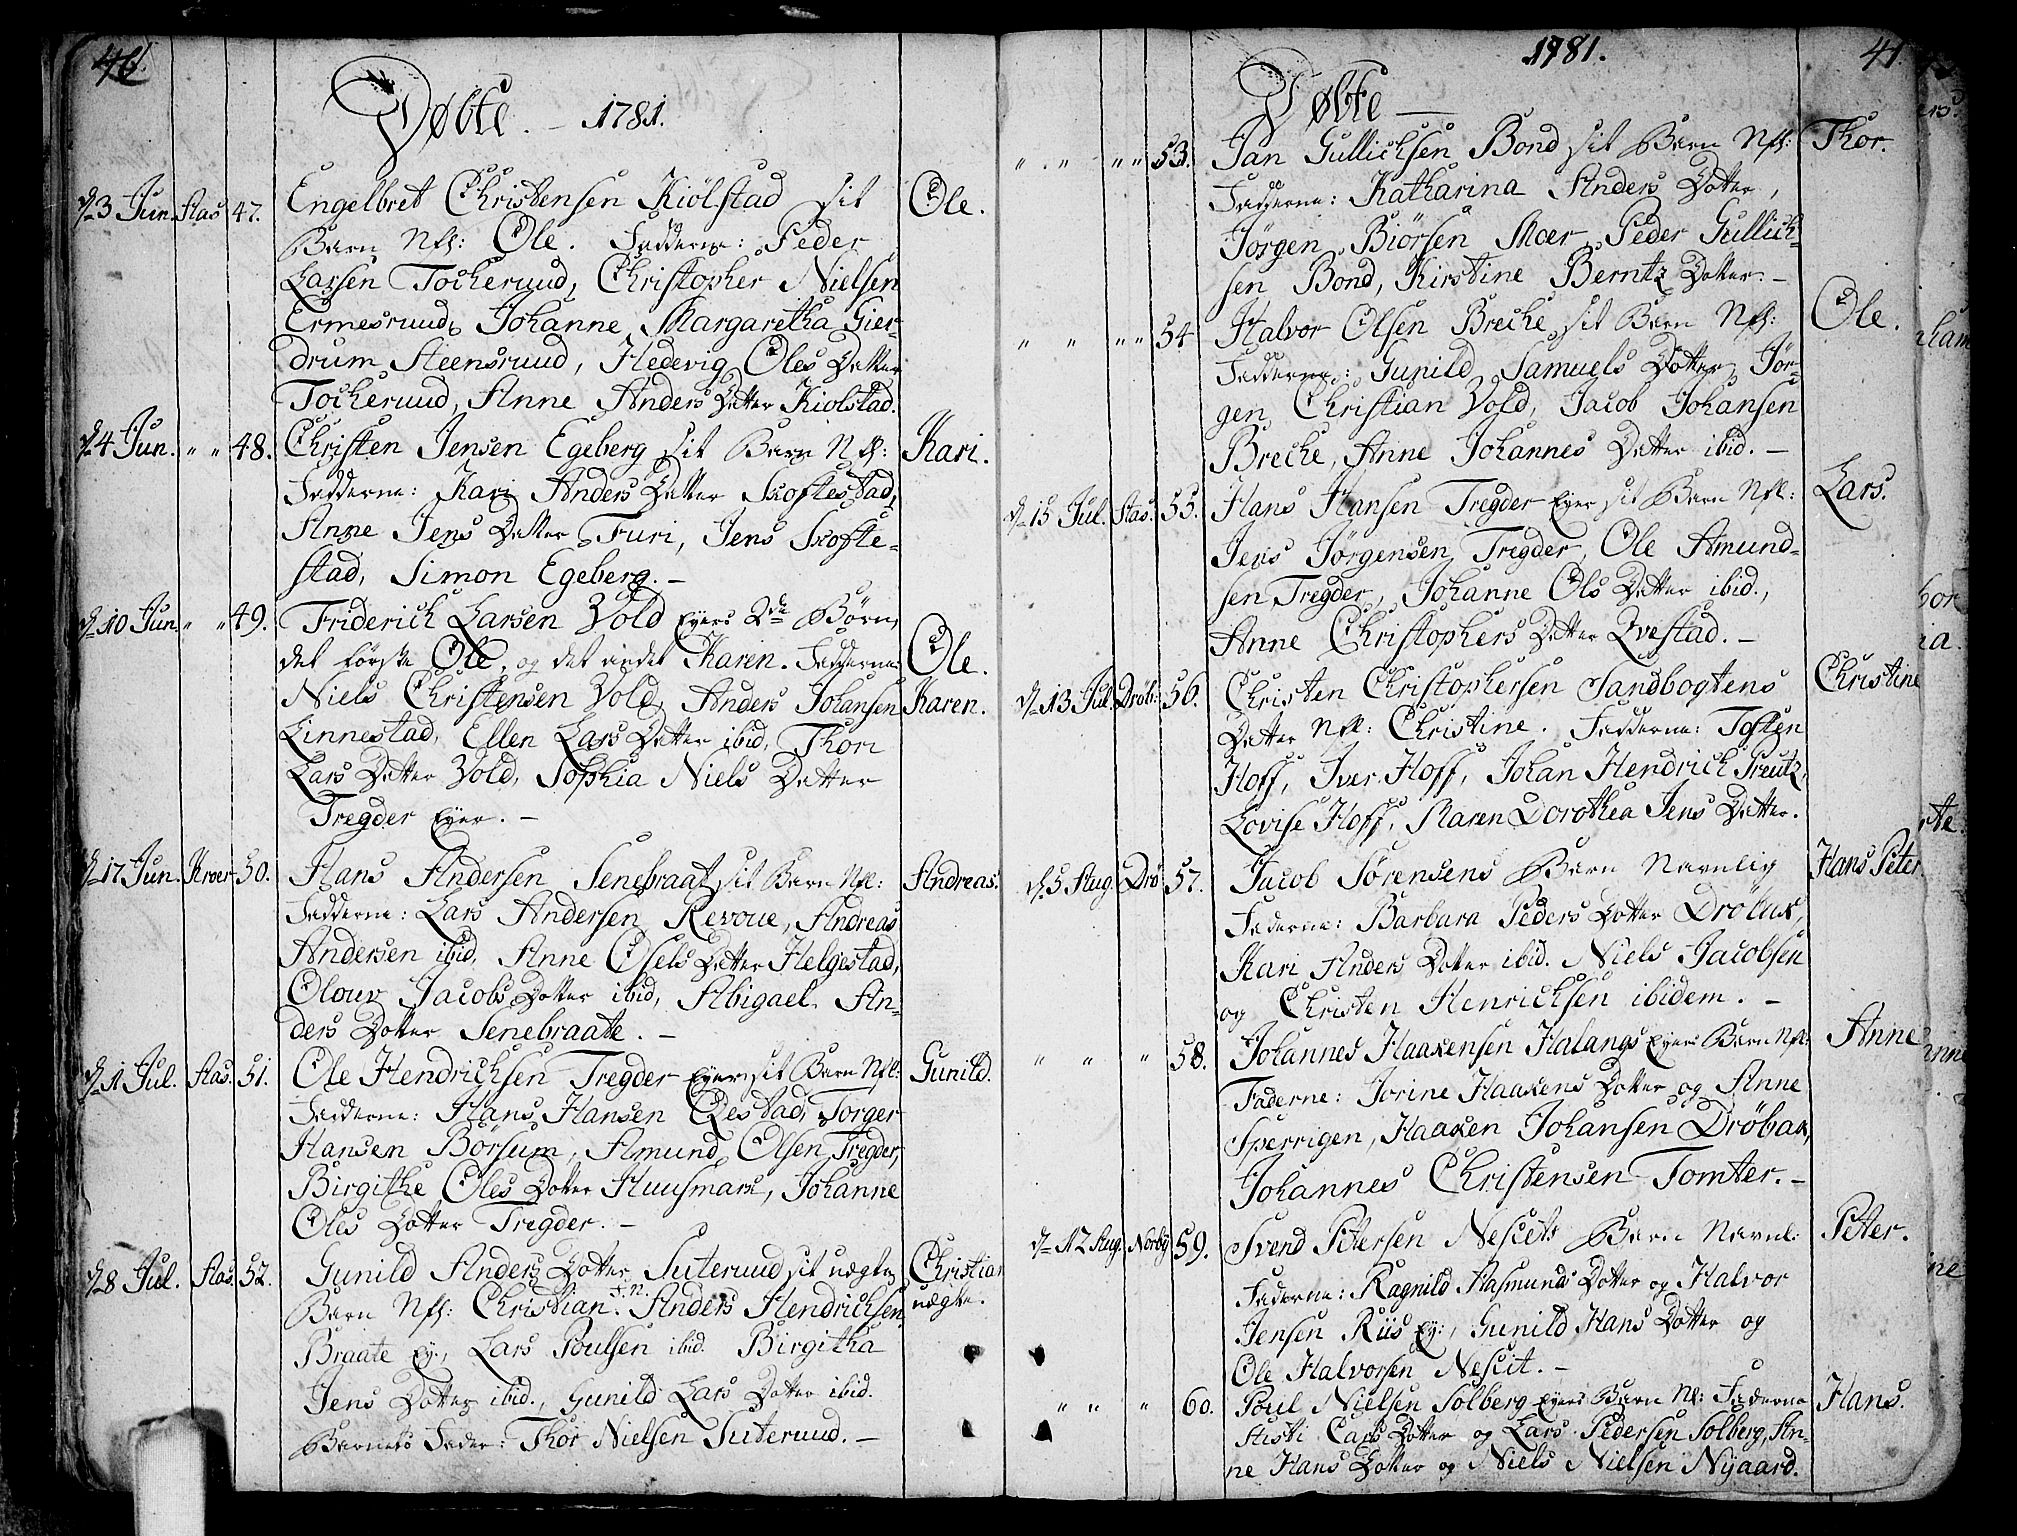 40.
Døbte. – 1781.
d. 3 Jun. Aas 47. Engelbret Christensen Kiölstad sit Ole.
Barn Nfl: Ole. Fadderne: Peder
Larsen Tockeruud, Christopher Nielsen
Ermesruud, Johanne Margaretha Gier-
drum Steensruud, Hedevig Oles Datter
Tockeruud, Anne Anders Datter Kiolstad.
d. 4 Jun. " " 48. Christen Jensen Egeberg sit Barn Nfl: Kari.
Fadderne: Kari Anders Datter Skoflestad,
Anne Jens Datter Furi, Jens Skofle-
stad, Simon Egeberg. –
d. 10 Jun. " " 49. Friderich Larsen Vold Eyers 2de Börn,
det förste Ole, og det andet Karen. Fadderne Ole.
Niels Christensen Vold, Anders Johansen Karen.
Linnestad, Ellen Lars Datter ibid, Thori
Lars Datter Vold, Sophia Niels Datter
Tregder Eyer. –
d. 17 Jun. Kroer 50. Hans Andersen Senebraat sit Barn Nfl: Andreas.
Fadderne: Lars Andersen Revoue, Andreas
Andersen ibid, Anne Osels Datter Helgestad,
Olouv Jacobs Dotter ibid, Abigael An-
ders Dotter Senebraate. –
d. 1 Jul. Aas. 51. Ole Hendrichsen Tregder Eyer sit Barn Nfl: Gunild.
Fadderne: Hans Hansen Qvestad, Torger
Hansen Börsum, Amund Olsen Tregder,
Birgithe Oles Dotter Huusmark, Johanne
Oles Dotter Tregder. –
d. 8 Jul. Aas. 52. Gunild Anders Dotter Suteruud sit uægte Christian
Barn Nfl: Christian. F. N. Anders Hendrichsen uægte.
Braate Ey:, Lars Poulsen ibid. Birgitha
Jens Dotter ibid., Gunild Lars Dotter ibid.
Barnets Fader: Thor Nielsen Suteruud. –
1781. 41
Døbte –
" " " " 53. Jan Gullichsen Bond sit Barn Nfl: Thor.
Fadderne: Katharina Anders Dotter,
Jörgen Biörsen Moer, Peder Gullich-
sen Bond, Kirstine Berntz Dotter. –
" " " " 54 Halvor Olsen Breche sit Barn Nfl: Ole.
Fadderne: Gunild Samuels Dotter, Jör-
gen Christian Vold, Jacob Johansen
Breche, Anne Johannes Datter ibid. –
d. 15 Jul. Aas. 55. Hans Hansen Tregder Eyer sit Barn Nfl: Lars.
Jens Jörgensen Tregder, Ole Amund-
sen Tregder, Johanne Ols Datter ibid.,
Anne Christophers Datter Qvestad. –
d. 13 Jul. Dröb: 56. Christen Christophersen Sandbogtens Christine
Datter Nfl: Christine. Fadderne: Tosten
Hoff, Iver Hoff, Johan Hendrich Preutz,
Lovise Hoff, Maren Dorothea Jens Datter.
d. 5 Aug. Drö 57. Jacob Sörensens Barn Navnlig Hans Peter.
Faderne: Barbara Peders Dotter Dröbak,
Kari Anders Dotter ibid. Niels Jacobsen
og Christen Henrichsen ibidem. –
" " " 58. Johannes Haaxensen Halangs Eyers Barn Nfl: Anne
Faderne: Jorine Haaxens Dotter og Anne
Sperrigen, Haaxen Johansen Dröbak,
Johannes Christensen Tomter. –
d. 12 Aug. Norby 59. Svend Petersen Nesets Barn Navnl: Peter.
Faderne: Ragnild Aasmunds Dotter og Halvor
Jensen Riis Ey:, Gunild Hans Dotter og
Ole Halvorsen Nescit. –
" " " 60. Poul Nielsen Solberg Eyers Barn Nl: Faderne Hans.
Aisti Carls Dotter og Lars Pedersen Solberg, An-
ne Hans Dotter og Niels Nielsen Nyaard.